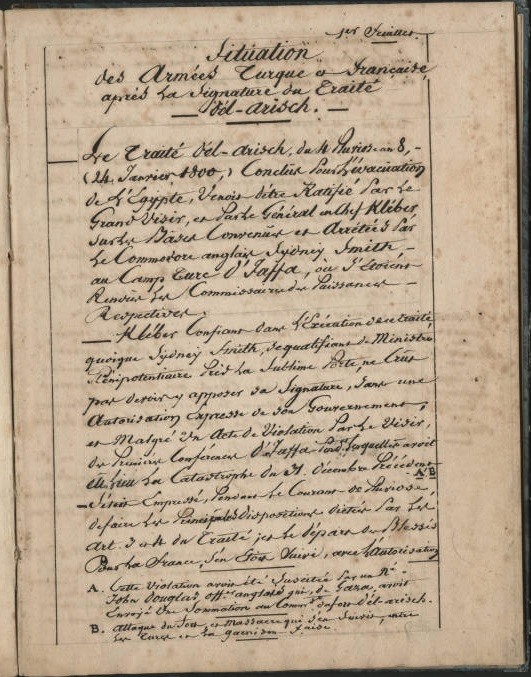 1er Feuillet
Situation
des Armées Turque et Française,
après la Signature du Traité
d'él-arisch.
Le Traité d'él-arisch, du 4 Pluviose an 8,
(24. Janvier 1800,) Conclus pour l'évacuation
de l'Egypte, Venoit d'être Ratifié Par le
Grand Visir, et Par le Général en Chef Kléber
sur les Bases Convenües et Arrêtées Par
le Commodore anglais Sydney Smith
au Camp Turc d'Jaffa, où S'étoient
Rendus les Commissaires des Puissances
Respectives.
Kléber Confiant dans l'Exécution de ce traité
quoique Sydney Smith, se qualifiant de Ministre
Plénipotentiaire Près la Sublime Porte, ne Crus
pas devoir y apposer sa Signature, sans une
Autorisation Expresse de son Gouvernement,
et Malgré un Acte de Violation Par le Visir,
des Premières Conférences d'Jaffa, Pend.t lesquelles avoit
eû Lieu la Catastrophe du 31. Décembre Précédent
A B
s'étoit Empressé, Pendant le Courant de Pluviose,
de faire les Principales dispositions dictées Par les
Art. 3 et 4 du Traité, et le départ des Blessés
Pour la France, s'en étoit Suivi, avec l'Autorisation
A. Cette Violation avoit été Suscitée Par un Mr
John Douglas, off.er anglais qui, de Gaza, avoit
Envoyé une Sommation au Comm.t du fort d'él-arisch.
B. Attaque du Fort, et Massacre qui s'en Suivit, entre
les Turcs et la garnison